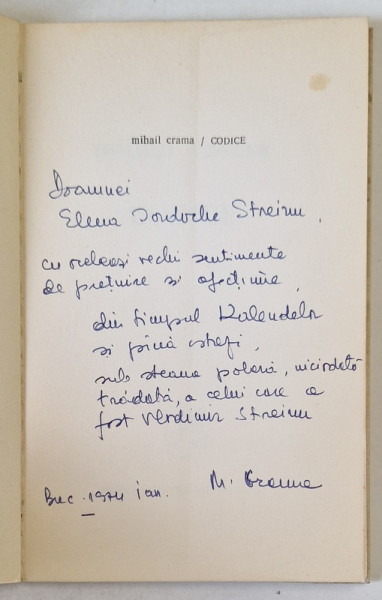 mihail crama / CODICE
Doamnei
Elena Iordache Streinu,
cu aceleași vechi sentimente
de prețuire și afecțiune,
din timpul Kalendelor
și pînă astăzi,
sub steaua polară, niciodată
trădată, a celui care a
fost Vladimir Streinu
Buc. 1974 ian. M. Crama